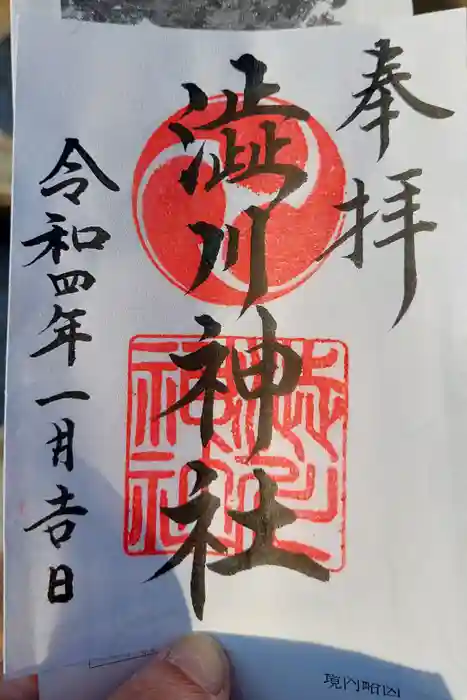 奉拝
澁川神社
令和四年一月吉日
境内略図